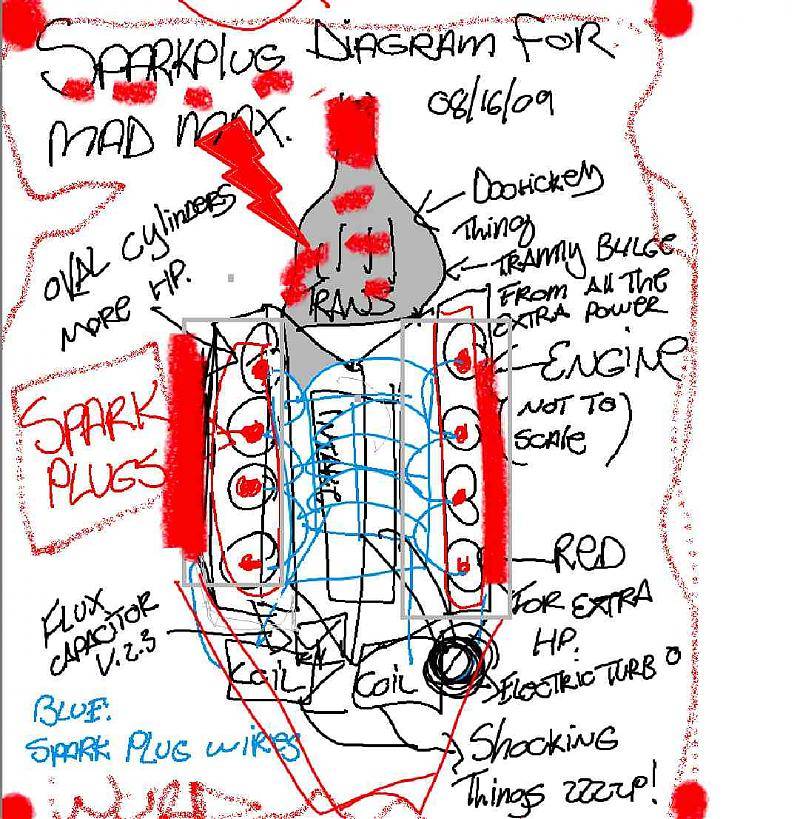 SPARKPLUG DIAGRAM FOR
MAD MAX.
08/16/09
DOOHICKEY
Thing
OVAL CYLINDERS
MORE HP.
TRANNY BULGE
FROM All THE
EXTRA POWER
TRANS
ENGINE
(NOT TO
SCALE)
SPARK
PLUGS
INTAKE
RED
FOR EXTRA
HP.
FLUX
CAPACITOR
V.2.3
COIL
COIL
ELECTRIC TURBO
BLUE:
SPARK PLUG WIRES
Shocking
Things ZZZZP!